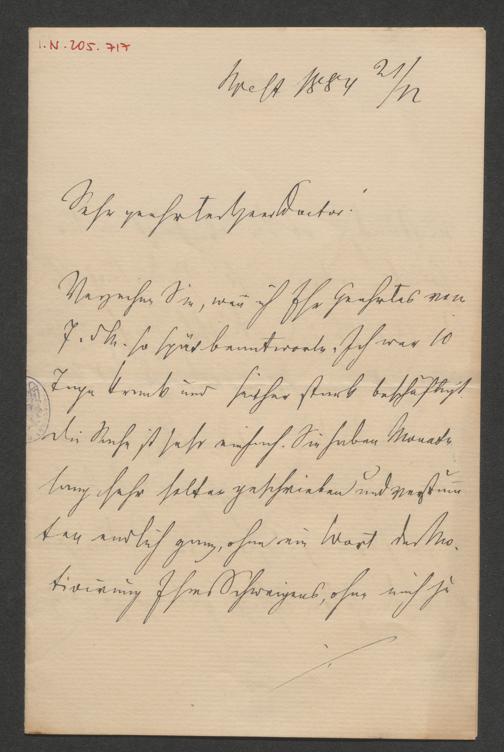 I.N. 205.717
Pest 1884 21/12
Sehr geehrter Herr Doctor!
Verzeihen Sie, wenn ich Ihr Geehrtes von
7. d M. so spät beantworte. Ich war 10
Tage krank und seither stark beschäftigt
die Sache ist sehr einfach. Sie haben Monate
lang sehr selten geschrieben und verstumm
ten endlich ganz, ohne ein Wort der Mo-
tivirung Ihres Schweigens, ohne mich zu
./.